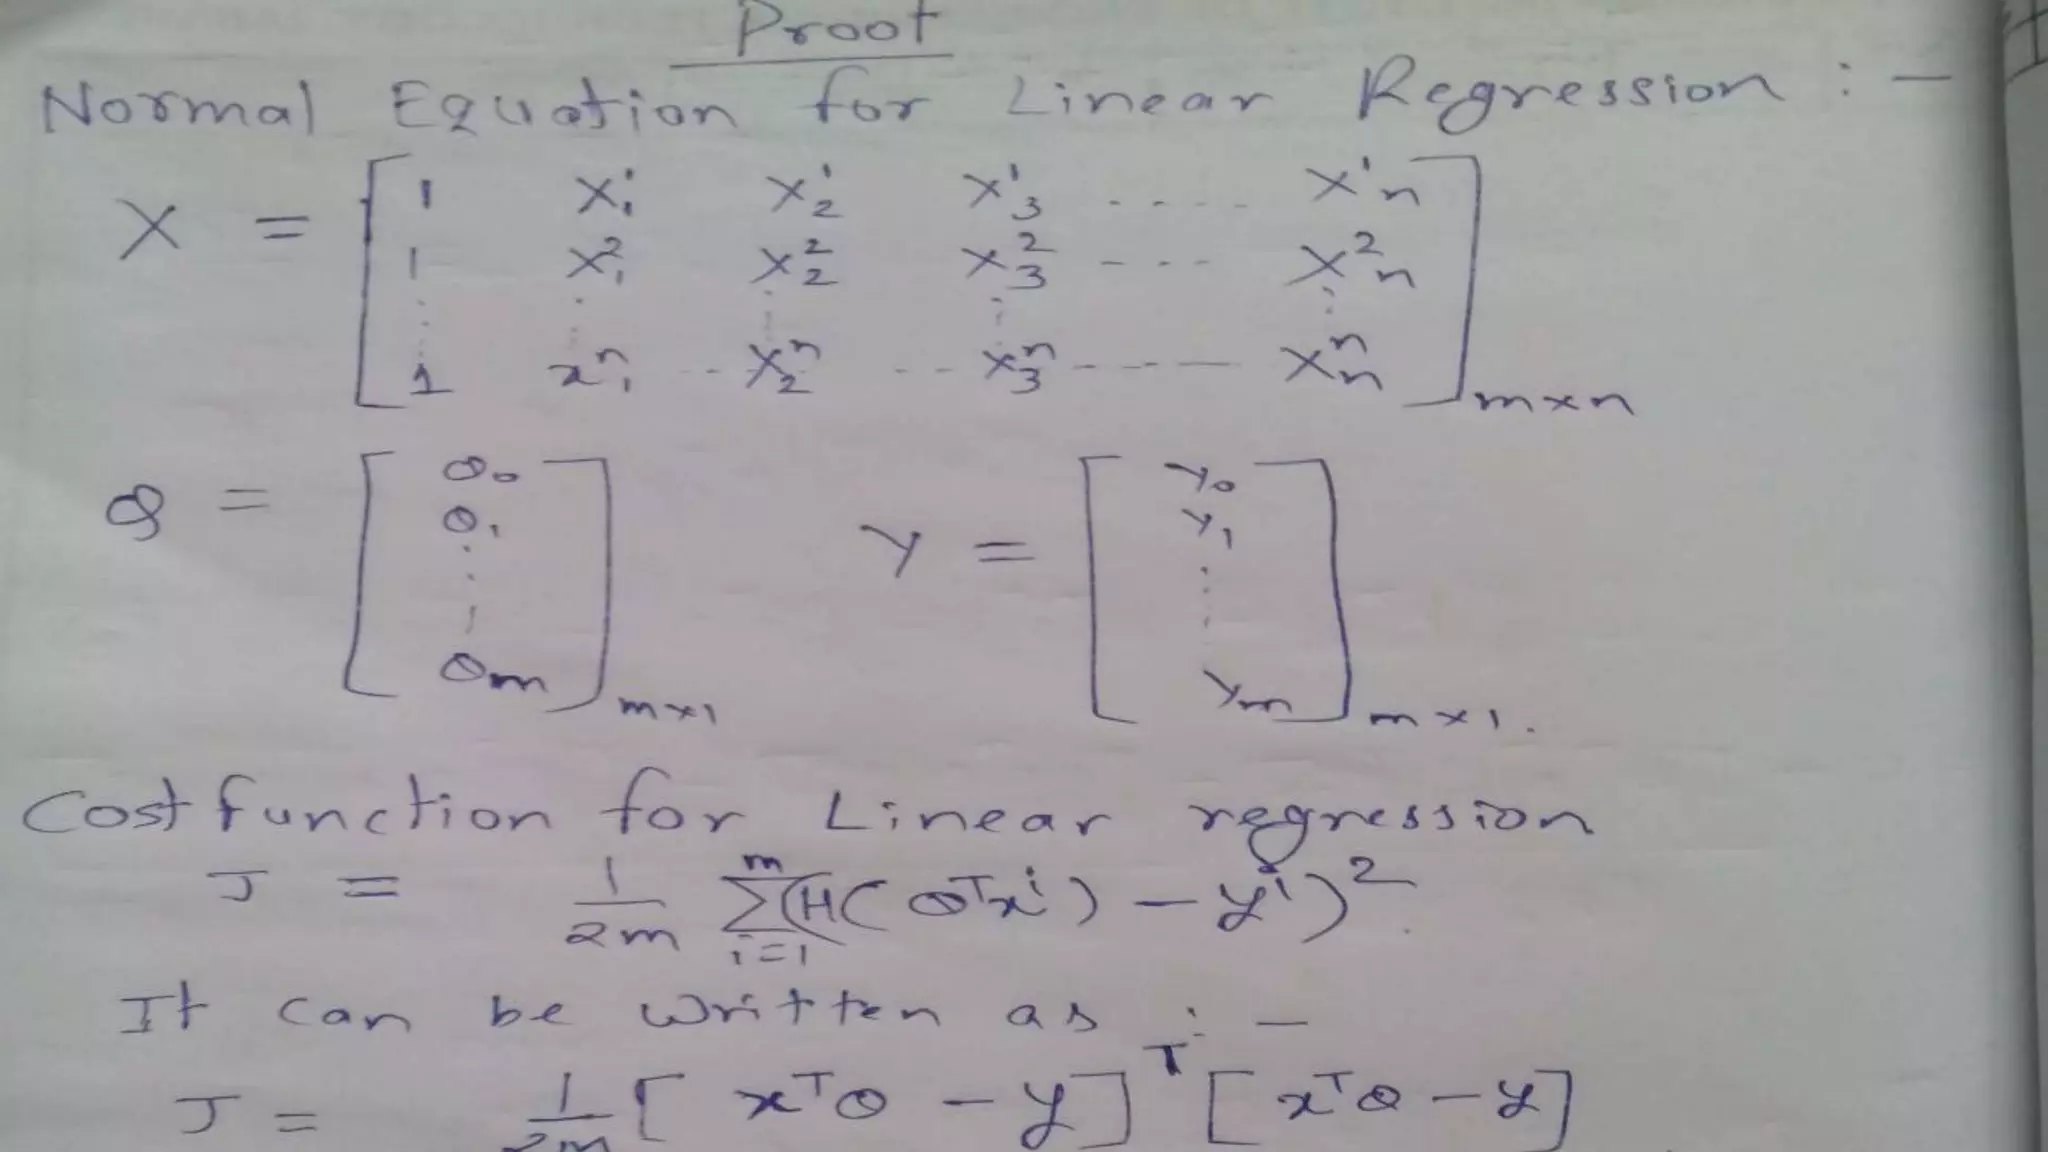 Proof
Normal Equation for Linear Regression : -
X = [ 1 x¹₁ x¹₂ x¹₃ ..... x¹ₙ
1 x²₁ x²₂ x²₃ ---- x²ₙ
⋮ ⋮ ⋮ ⋮ ⋮
1 xⁿ₁ -- xⁿ₂ --- xⁿ₃ ----- xⁿₙ ] m×n
θ = [ θ₀ θ₁ ⋮ θm ] m×1 Y = [ y₀ y₁ ⋮ ym ] m×1.
Cost function for Linear regression
J = 1/2m Σᵐᵢ₌₁ (H(θᵀxⁱ) - yⁱ)².
It can be written as :-
J = 1/2m [ xᵀθ - y ]ᵀ [ xᵀθ - y ]